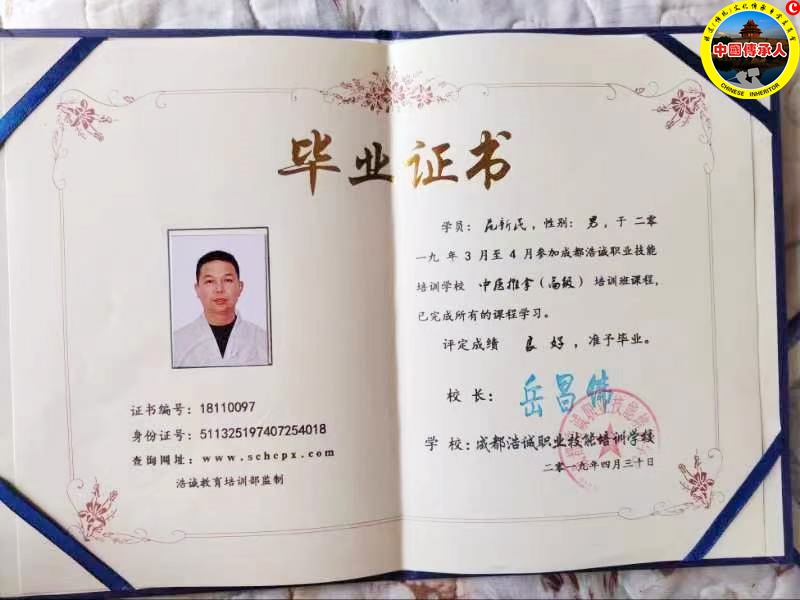 中國傳承人
CHINESE INHERITOR
毕业证书
证书编号：18110097
身份证号：511325197407254018
查询网址：www.schcpx.com
浩诚教育培训部监制
学员：新民，性别：男，于二零
一九年3月至4月参加成都浩诚职业技能
培训学校 中医推拿（高级）培训班课程，
已完成所有的课程学习。
评定成绩 良好，准予毕业。
校长：岳昌伟
学校：成都浩诚职业技能培训学校
二零一九年四月三十日